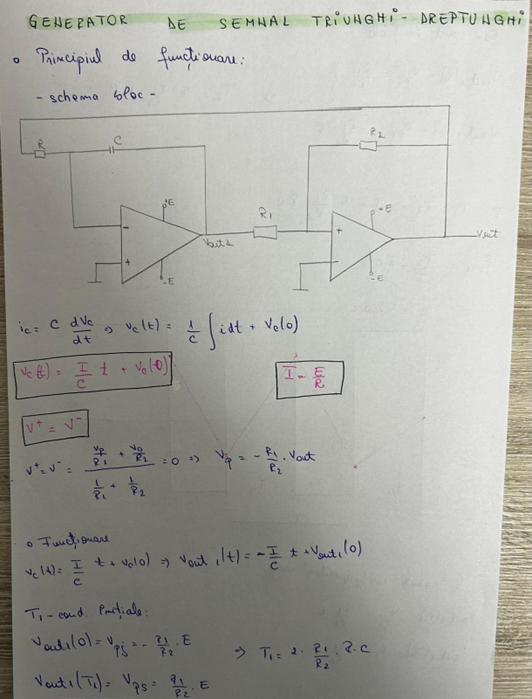 GENERATOR DE SEMNAL TRIUNGHI-DREPTUNGHI
o Principiul de funcționare:
- schema bloc -
R
C
R2
+E
-
+
-E
Vout1
R1
-E
+
-
-E
Vout
ic = C dVc/dt ⇒ Vc(t) = 1/C ∫ i dt + Vc(0)
Vc(t) = I/C t + Vc(0)
I = E/R
V+ = V-
V+ = V- = (Vp/R1 + Vo/R2) / (1/R1 + 1/R2) = 0 ⇒ Vp = - R1/R2 · Vout
o Funcționare
Vc(t) = I/C t + Vc(0) ⇒ Vout1(t) = - I/C t + Vout1(0)
T1 - cond. inițiale:
Vout1(0) = Vpj = - R1/R2 · E
⇒ T1 = 2 · R1/R2 · R · C
Vout1(T1) = Vps = R1/R2 · E